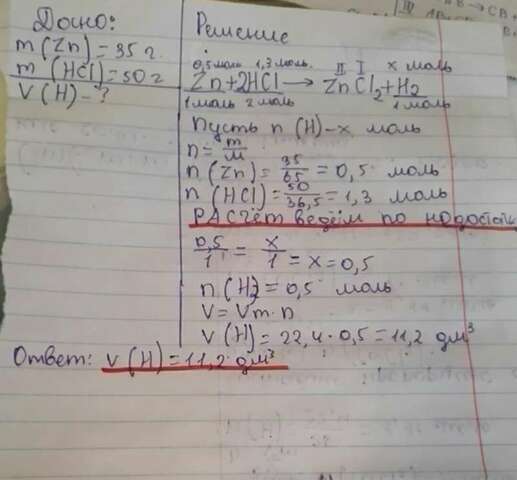 Дано:
m(Zn)=35 г.
m(HCl)=50 г
V(H)-?
Решение
0,5 моль 1,3 моль. II I x моль
Zn+2HCl→ZnCl2+H2
1 моль 2 моль 1 моль
Пусть n(H)-x моль
n=m/M
n(Zn)=35/65=0,5 моль
n(HCl)=50/36,5=1,3 моль
РАСчёт ведём по недостатк
0,5/1=x/1=x=0,5
n(H2=0,5 моль
V=Vm·n
V(H)=22,4·0,5=11,2 дм³
Ответ: V(H)=11,2 дм³